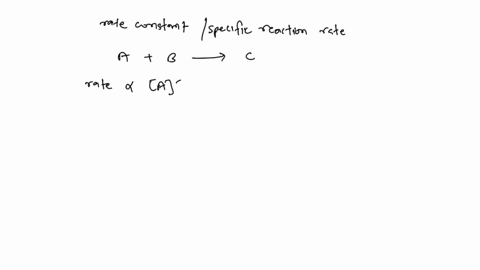 rate constant / specific reaction rate
A + B ⟶ C
rate α [A]